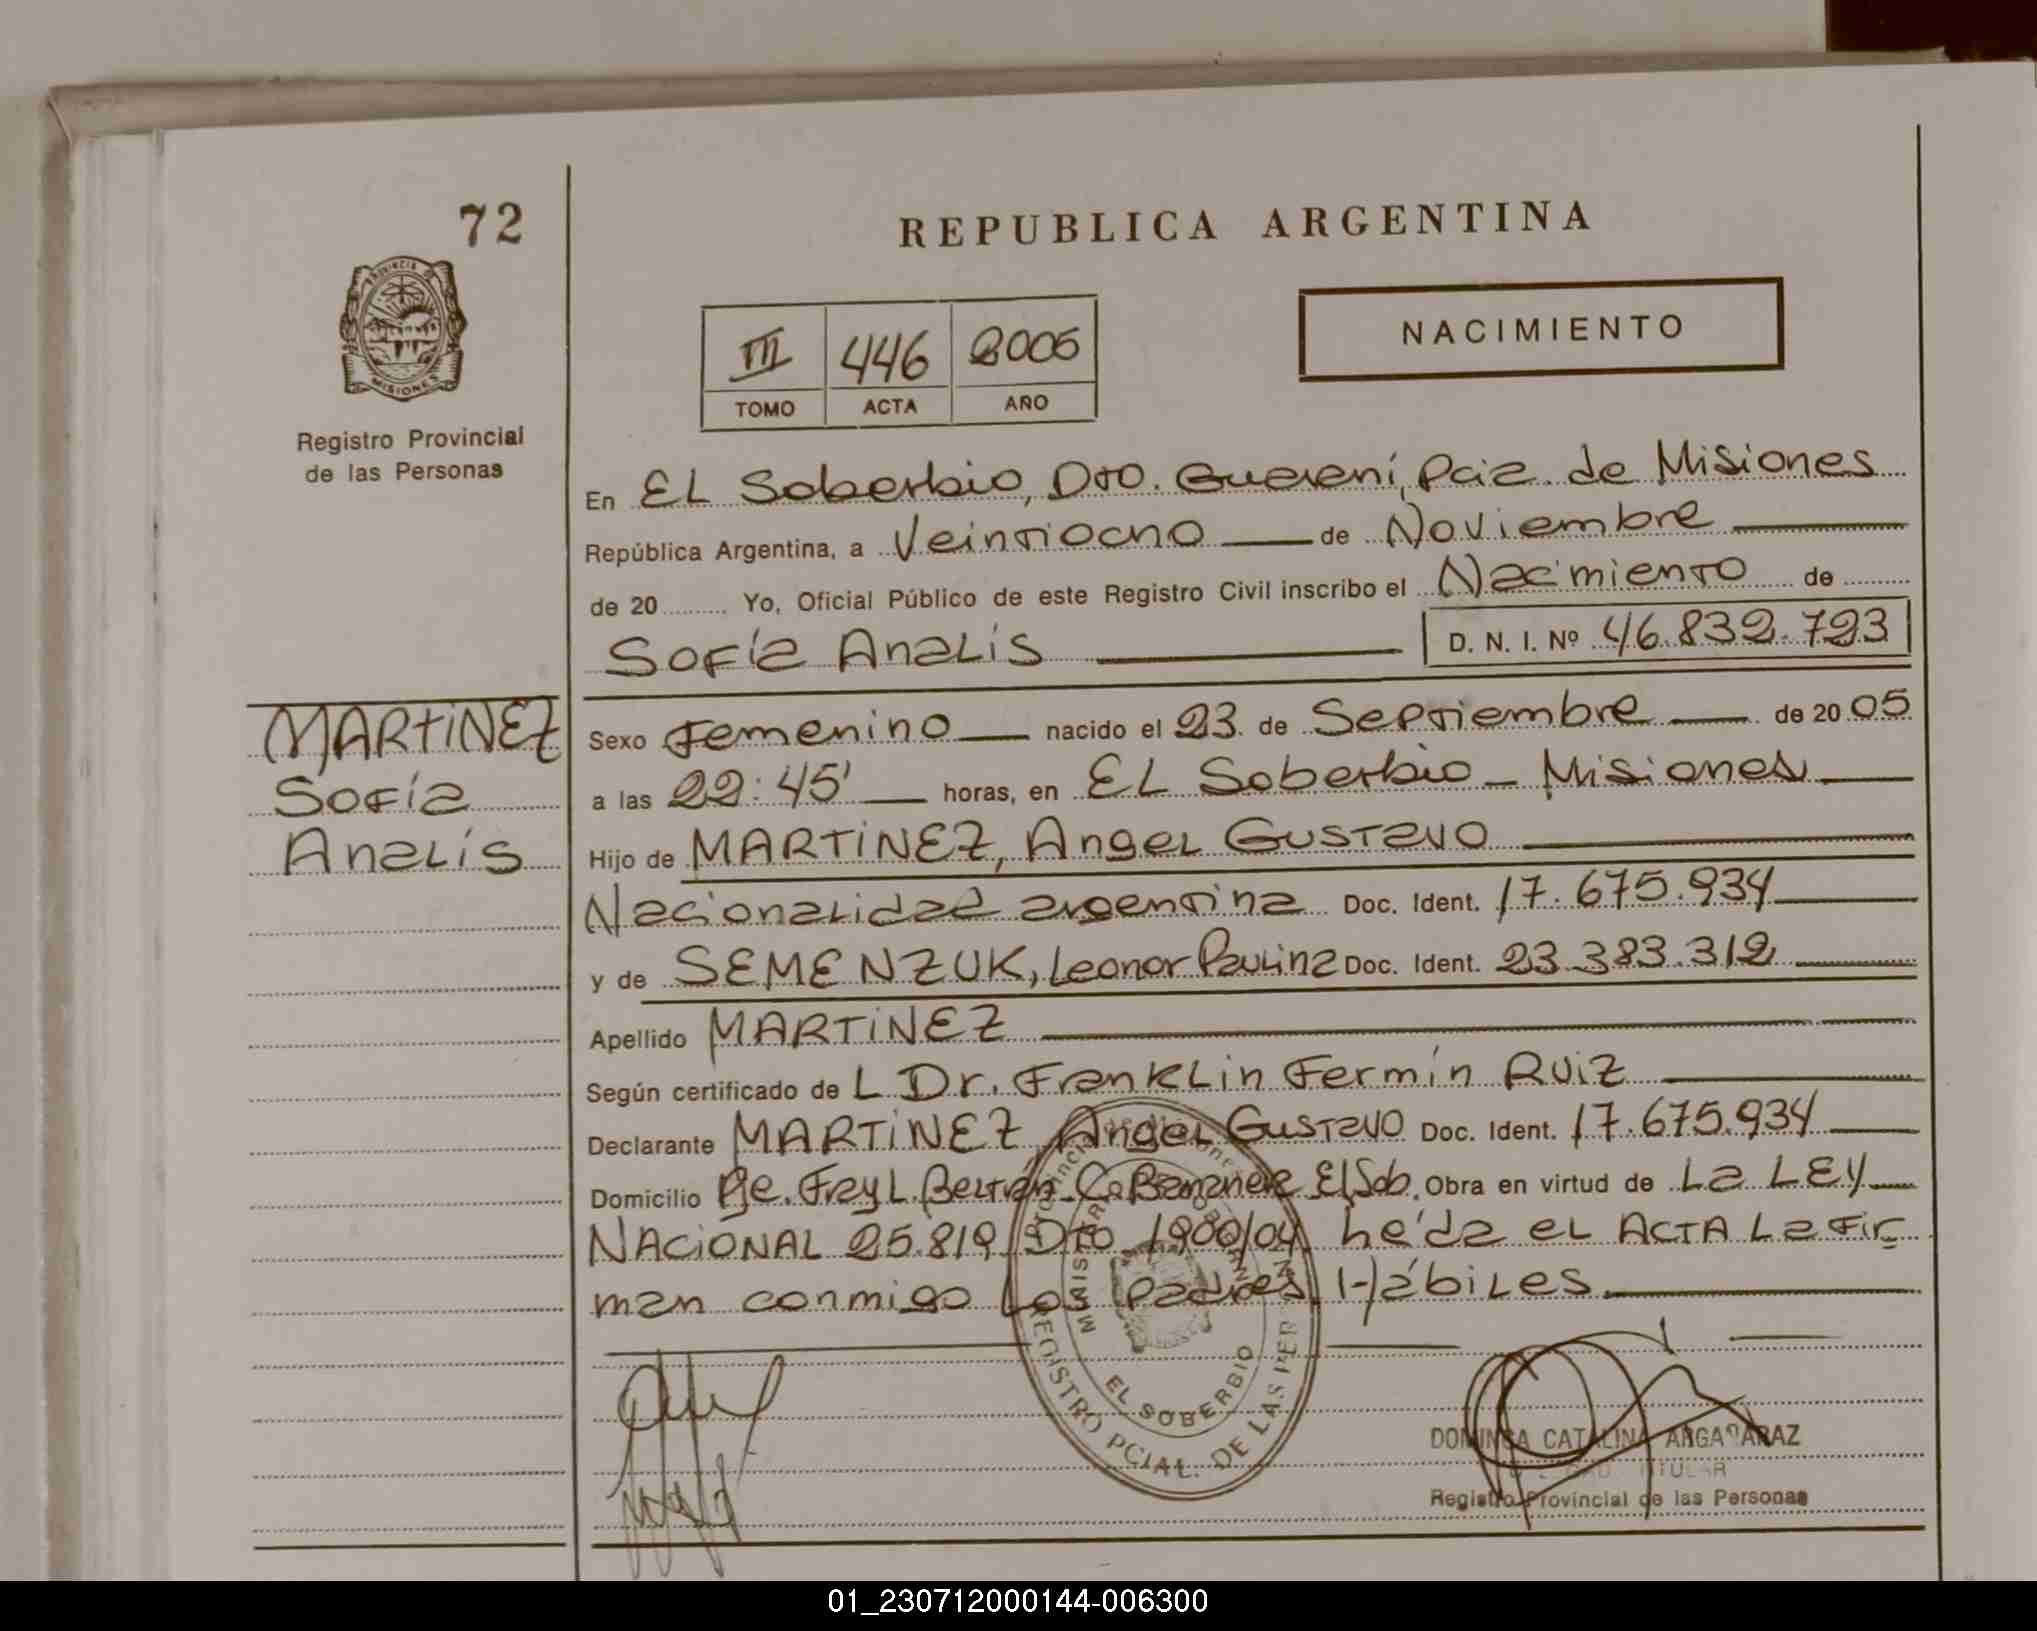 72
REPUBLICA ARGENTINA
NACIMIENTO
III 446 2005
TOMO ACTA AÑO
PROVINCIA DE
MISIONES
Registro Provincial
de las Personas
En EL Soberbio, Dto. Guaraní, Pcia. de Misiones
República Argentina, a Veintiocho de Noviembre
de 20 Yo, Oficial Público de este Registro Civil inscribo el Nacimiento de
Sofía Analís D. N. I. Nº 46.832.723
MARTINEZ
Sofía
Analís
Sexo Femenino nacido el 23 de Septiembre de 2005
a las 22:45' horas, en EL Soberbio - Misiones
Hijo de MARTINEZ, Angel Gustavo
Nacionalidad argentina Doc. Ident. 17.675.934
y de SEMENZUK, Leonor Paulina Doc. Ident. 23.383.312
Apellido MARTINEZ
Según certificado de L Dr. Franklin Fermín Ruiz
Declarante MARTINEZ, Angel Gustavo Doc. Ident. 17.675.934
Domicilio Pje. Fray L. Beltrán El Sob. Obra en virtud de La LEY
NACIONAL 25.819 Dto 1900/04 heída el ACTA La Fir
man conmigo Los Padres Hábiles
EL SOBERBIO
REGISTRO PCIAL. DE LAS PER
DOMINGA CATALINA ARGAÑARAZ
TITULAR
Registro Provincial de las Personas
01_230712000144-006300